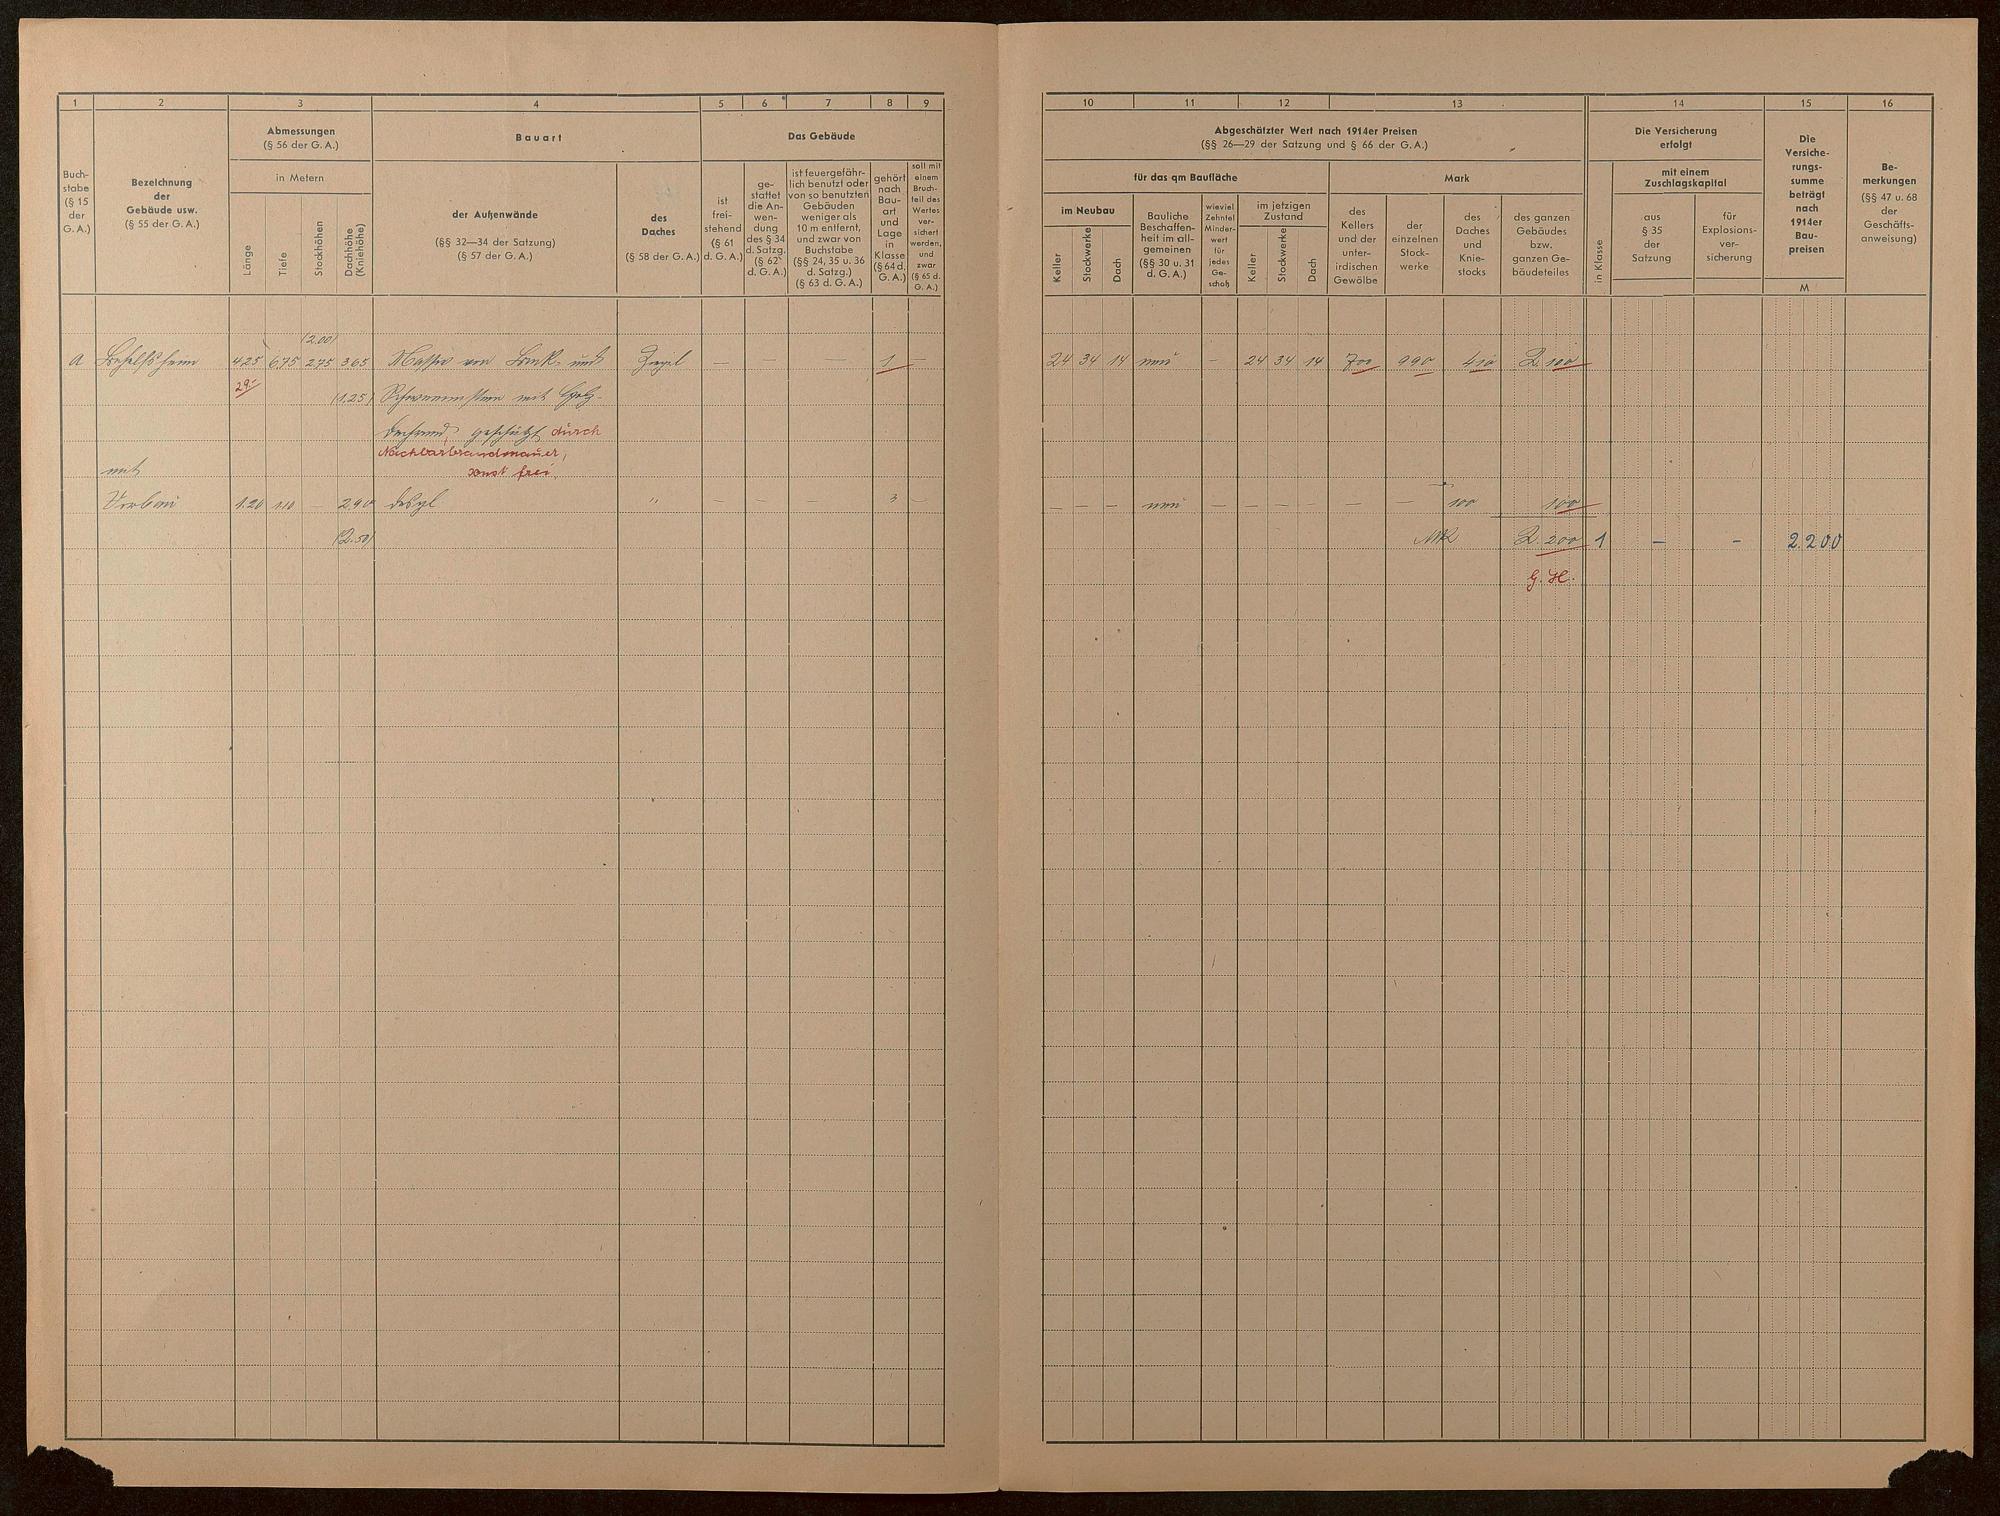 1 2 3 4 5 6 7 8 9
Buch-
stabe
(§ 15
der
G. A.)
Bezeichnung
der
Gebäude usw.
(§ 55 der G. A.)
Abmessungen
(§ 56 der G. A.)
in Metern
Länge
Tiefe
Stockhöhen
Dachhöhe
(Kniehöhe)
Bauart
der Außenwände
(§§ 32—34 der Satzung)
(§ 57 der G. A.)
des
Daches
(§ 58 der G. A.)
Das Gebäude
ist
frei-
stehend
(§ 61
d. G. A.)
ge-
stattet
die An-
wen-
dung
des § 34
d. Satzg.
(§ 62
d. G. A.)
ist feuergefähr-
lich benutzt oder
von so benutzten
Gebäuden
weniger als
10 m entfernt,
und zwar von
Buchstabe
(§§ 24, 35 u. 36
d. Satzg.)
(§ 63 d. G. A.)
gehört
nach
Bau-
art
und
Lage
in
Klasse
(§ 64 d.
G. A.)
soll mit
einem
Bruch-
teil des
Wertes
ver-
sichert
werden,
und
zwar
(§ 65 d.
G. A.)
(2.00)
A 4.25 6.75 2.75 3.65 Massiv von Bruck- und Ziegel — — 1 —
29.-
(1.25) Schwemmstein mit Holz-
geschützt durch
Nachbarbrandmauer,
mit
sonst frei.
Vorbau 1.20 1.10 — 2.90 desgl " — — 3 —
(2.50)
10 11 12 13 14 15 16
Abgeschätzter Wert nach 1914er Preisen
(§§ 26—29 der Satzung und § 66 der G. A.)
für das qm Baufläche
im Neubau
Keller
Stockwerke
Dach
Bauliche
Beschaffen-
heit im all-
gemeinen
(§§ 30 u. 31
d. G. A.)
wieviel
Zehntel
Minder-
wert
für
jedes
Ge-
schoß
im jetzigen
Zustand
Keller
Stockwerke
Dach
Mark
des
Kellers
und der
unter-
irdischen
Gewölbe
der
einzelnen
Stock-
werke
des
Daches
und
Knie-
stocks
des ganzen
Gebäudes
bzw.
ganzen Ge-
bäudeteiles
Die Versicherung
erfolgt
in Klasse
mit einem
Zuschlagskapital
aus
§ 35
der
Satzung
für
Explosions-
ver-
sicherung
Die
Versiche-
rungs-
summe
beträgt
nach
1914er
Bau-
preisen
M
Be-
merkungen
(§§ 47 u. 68
der
Geschäfts-
anweisung)
24 34 14 neu — 24 34 14 700 990 410 2.100
— — — neu — — — — — — 100 100
Mk 2.200 1 — — 2.200
G. H.